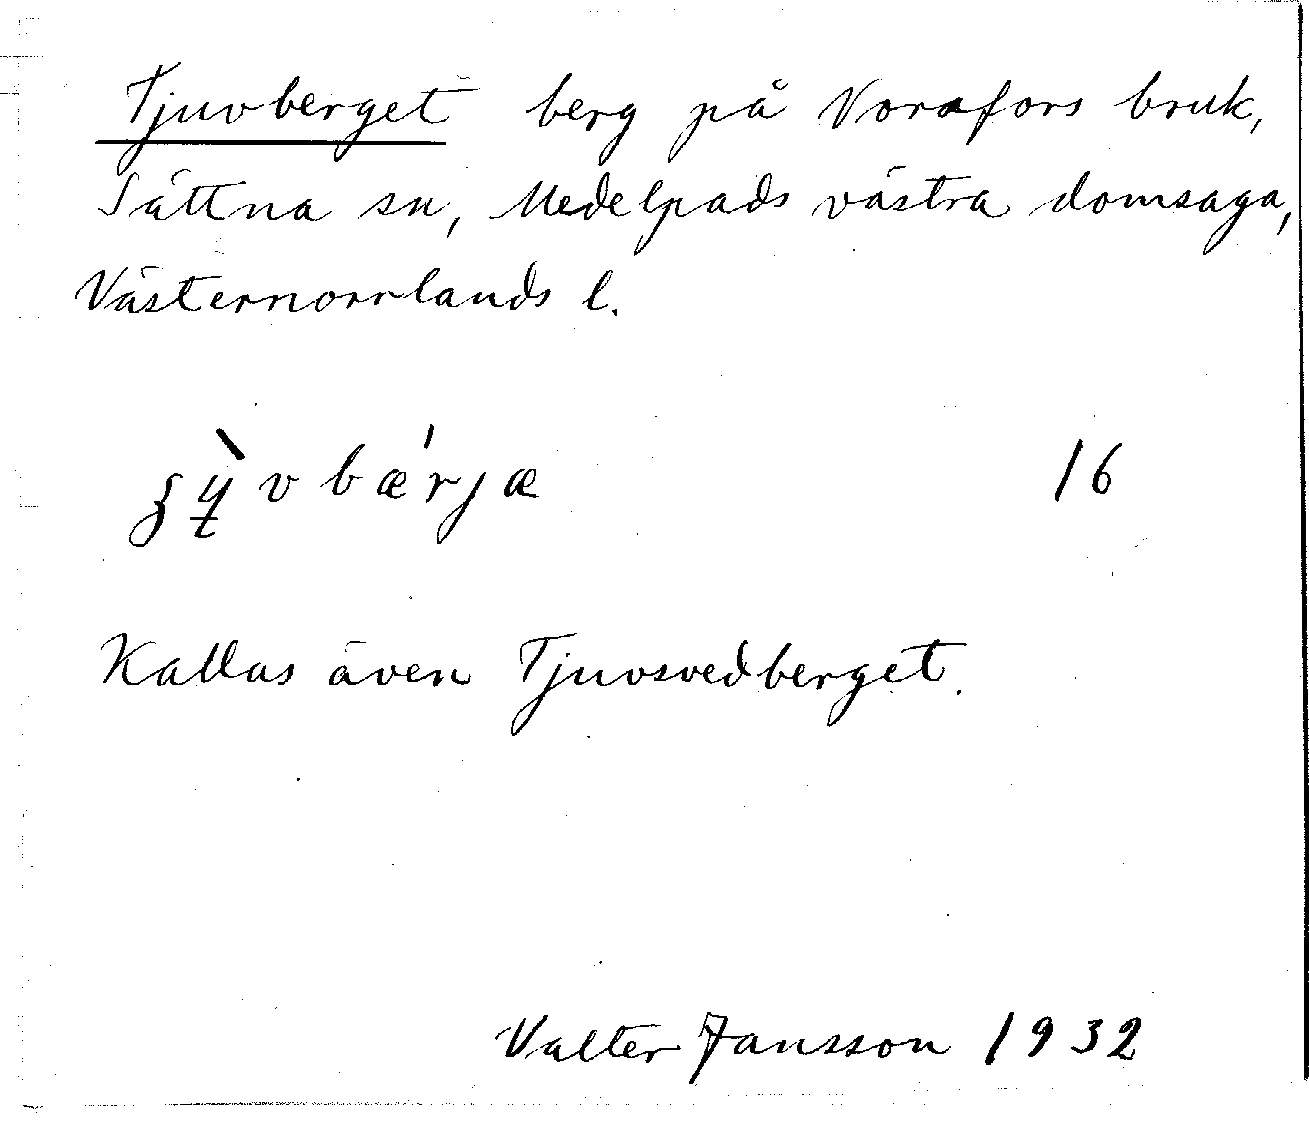 Tjuvberget berg på Vorafors bruk,
Sättna sn, Medelpads västra domsaga,
Västernorrlands l.
16
Kallas även Tjuvsvedberget.
Valter Jansson 1932